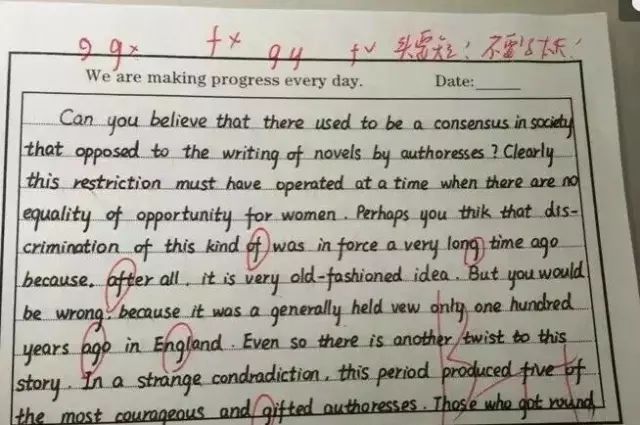 g gx fx gy fv
We are making progress every day. Date:
Can you believe that there used to be a consensus in society
that opposed to the writing of novels by authoresses ? Clearly
this restriction must have operated at a time when there are no
equality of opportunity for women . Perhaps you thik that dis-
crimination of this kind of was in force a very long time ago
because, after all , it is very old-fashioned idea . But you would
be wrong, because it was a generally held vew only one hundred
years ago in England . Even so there is another twist to this
story . In a strange condradiction , this period produced five of
the most courageous and gifted authoresses . Those who got round